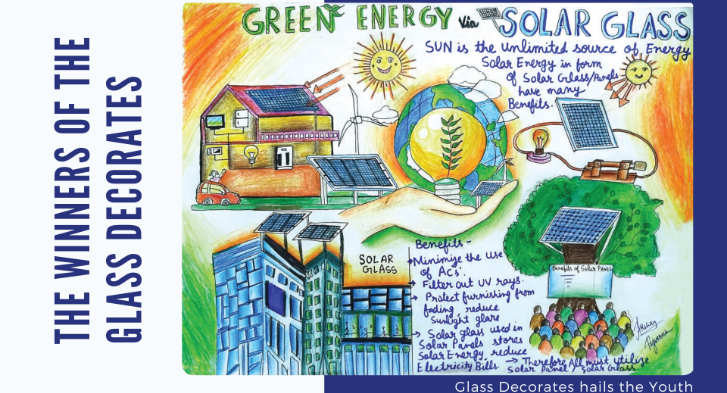 THE WINNERS OF THE
GLASS DECORATES
GREEN ENERGY Via SOLAR GLASS
SUN is the Unlimited source of Energy
Solar Energy in form
of Solar Glass/Panels
have many
Benefits.
SOLAR
GLASS
Benefits -
Minimize the Use
of ACs.
→ Filter out UV rays.
→ Protect furnishing from
fading reduce
Sunlight glare
→ Solar glass used in
Solar Panels stores
Solar Energy, reduce
Electricity Bills.
→ Therefore All must utilize
Solar Panel/Solar Glass
Benefits of Solar Panel
Glass Decorates hails the Youth